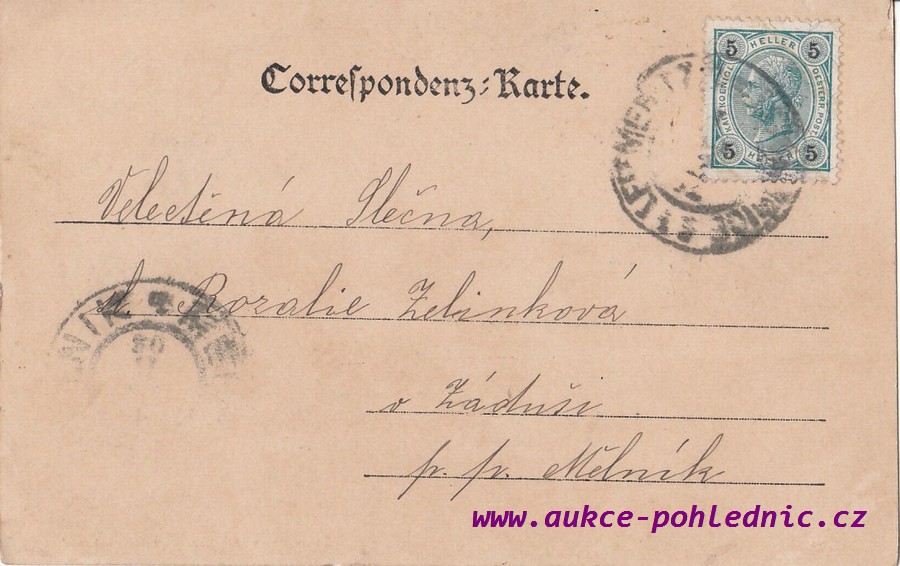 5 HELLER 5
KAIS.KOENIGL. OESTERR.POST
5 HELLER 5
Correspondenz-Karte.
Velectěná Slečna,
sl. Rozalie Zelinková
v Záduši
p. p. Mělník
www.aukce-pohlednic.cz